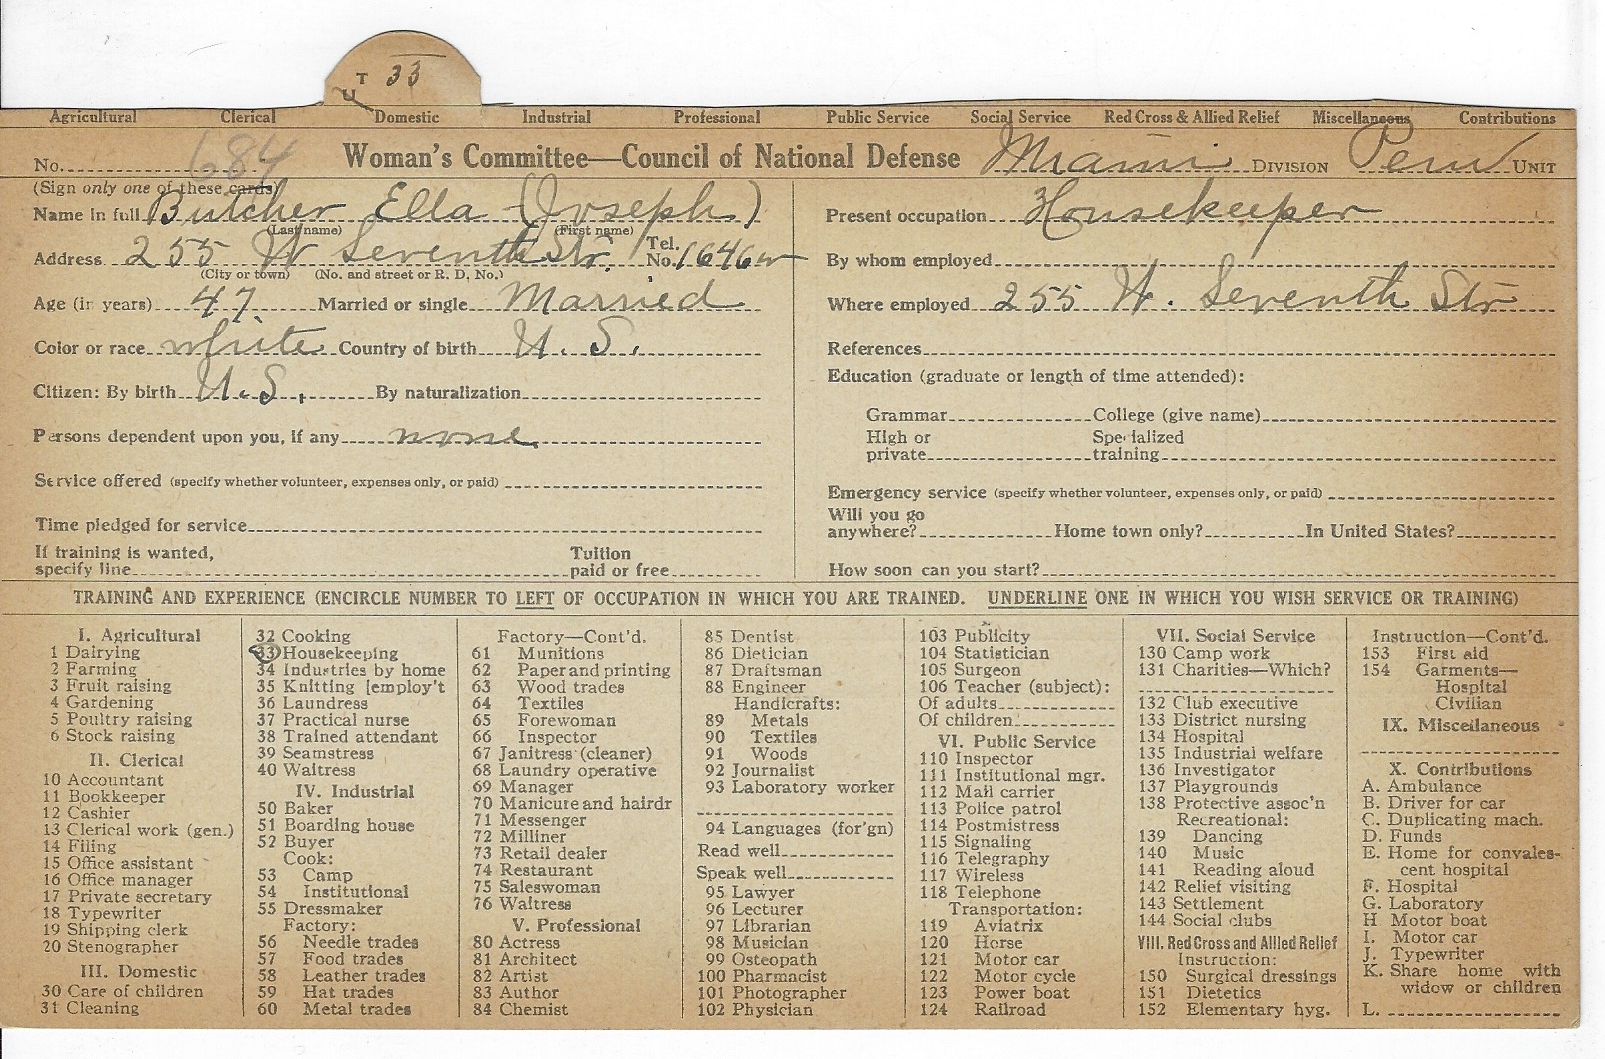 T 33
U
Agricultural Clerical Domestic Industrial Professional Public Service Social Service Red Cross & Allied Relief Miscellaneous Contributions
No. 684 Woman's Committee—Council of National Defense Miami DIVISION Peru UNIT
(Sign only one of these cards)
Name in full Butcher Ella (Joseph)
(Last name) (First name)
Address 255 W Seventh Str. Tel. No. 1646w
(City or town) (No. and street or R. D. No.)
Age (in years) 47 Married or single Married
Color or race white Country of birth U. S.
Citizen: By birth U.S. By naturalization
Persons dependent upon you, if any none
Service offered (specify whether volunteer, expenses only, or paid)
Time pledged for service
If training is wanted, specify line Tuition paid or free
Present occupation Housekeeper
By whom employed
Where employed 255 W. Seventh Str
References
Education (graduate or length of time attended):
Grammar College (give name)
High or private Specialized training
Emergency service (specify whether volunteer, expenses only, or paid)
Will you go anywhere? Home town only? In United States?
How soon can you start?
TRAINING AND EXPERIENCE (ENCIRCLE NUMBER TO LEFT OF OCCUPATION IN WHICH YOU ARE TRAINED. UNDERLINE ONE IN WHICH YOU WISH SERVICE OR TRAINING)
I. Agricultural
1 Dairying
2 Farming
3 Fruit raising
4 Gardening
5 Poultry raising
6 Stock raising
II. Clerical
10 Accountant
11 Bookkeeper
12 Cashier
13 Clerical work (gen.)
14 Filing
15 Office assistant
16 Office manager
17 Private secretary
18 Typewriter
19 Shipping clerk
20 Stenographer
III. Domestic
30 Care of children
31 Cleaning
32 Cooking
33 Housekeeping
34 Industries by home
35 Knitting [employ't
36 Laundress
37 Practical nurse
38 Trained attendant
39 Seamstress
40 Waitress
IV. Industrial
50 Baker
51 Boarding house
52 Buyer
Cook:
53 Camp
54 Institutional
55 Dressmaker
Factory:
56 Needle trades
57 Food trades
58 Leather trades
59 Hat trades
60 Metal trades
Factory—Cont'd.
61 Munitions
62 Paper and printing
63 Wood trades
64 Textiles
65 Forewoman
66 Inspector
67 Janitress (cleaner)
68 Laundry operative
69 Manager
70 Manicure and hairdr
71 Messenger
72 Milliner
73 Retail dealer
74 Restaurant
75 Saleswoman
76 Waitress
V. Professional
80 Actress
81 Architect
82 Artist
83 Author
84 Chemist
85 Dentist
86 Dietician
87 Draftsman
88 Engineer
Handicrafts:
89 Metals
90 Textiles
91 Woods
92 Journalist
93 Laboratory worker
94 Languages (for'gn)
Read well
Speak well
95 Lawyer
96 Lecturer
97 Librarian
98 Musician
99 Osteopath
100 Pharmacist
101 Photographer
102 Physician
103 Publicity
104 Statistician
105 Surgeon
106 Teacher (subject):
Of adults
Of children
VI. Public Service
110 Inspector
111 Institutional mgr.
112 Mail carrier
113 Police patrol
114 Postmistress
115 Signaling
116 Telegraphy
117 Wireless
118 Telephone
Transportation:
119 Aviatrix
120 Horse
121 Motor car
122 Motor cycle
123 Power boat
124 Railroad
VII. Social Service
130 Camp work
131 Charities—Which?
132 Club executive
133 District nursing
134 Hospital
135 Industrial welfare
136 Investigator
137 Playgrounds
138 Protective assoc'n
Recreational:
139 Dancing
140 Music
141 Reading aloud
142 Relief visiting
143 Settlement
144 Social clubs
VIII. Red Cross and Allied Relief
Instruction:
150 Surgical dressings
151 Dietetics
152 Elementary hyg.
Instruction—Cont'd.
153 First aid
154 Garments—
Hospital
Civilian
IX. Miscellaneous
X. Contributions
A. Ambulance
B. Driver for car
C. Duplicating mach.
D. Funds
E. Home for convales-
cent hospital
F. Hospital
G. Laboratory
H. Motor boat
I. Motor car
J. Typewriter
K. Share home with
widow or children
L.